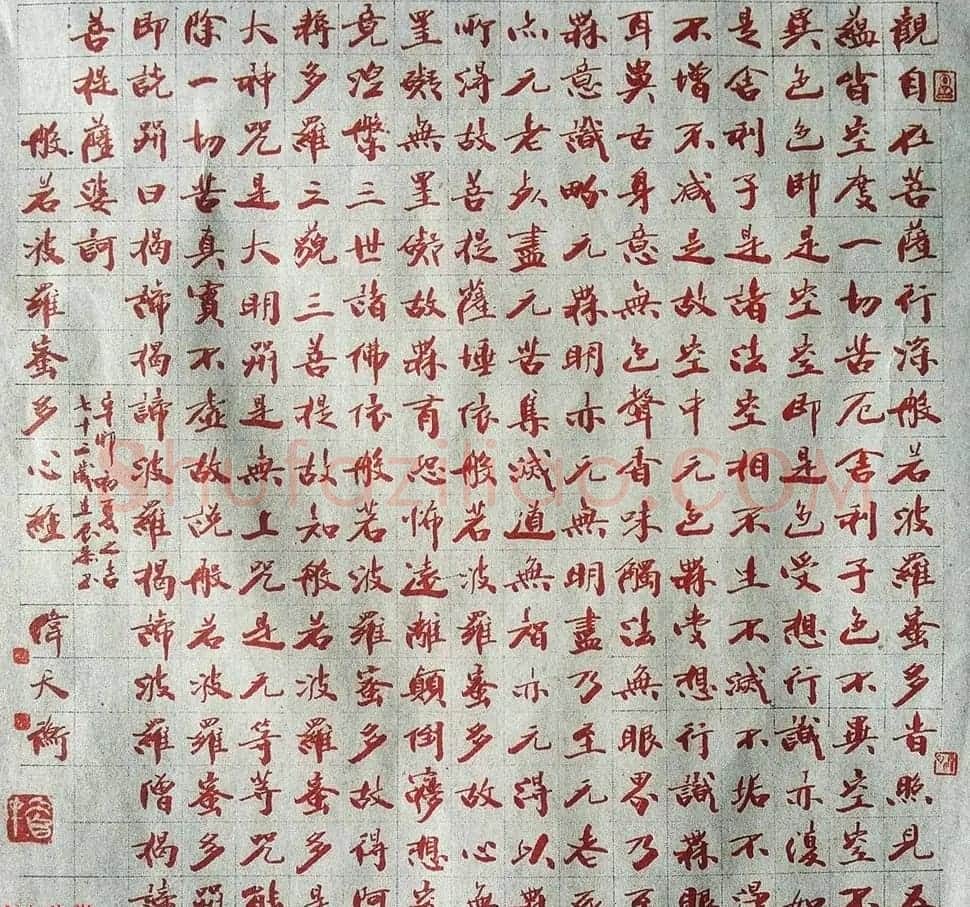 觀自在菩薩行深般若波羅蜜多旹照見五
蘊皆空度一切苦厄舍利子色不異空空不
異色色即是空空即是色受想行識亦復如
是舍利子是諸法空相不生不滅不垢不淨
不增不减是故空中无色無受想行識無眼
耳鼻舌身意無色聲香味觸法無眼界乃至
無意識界无無明亦无無明盡乃至无老死
亦无老死盡无苦集滅道無智亦无得以無
所得故菩提薩埵依般若波羅蜜多故心無
罣礙無罣礙故無有恐怖遠離顛倒夢想究
竟涅槃三世諸佛依般若波羅蜜多故得阿
耨多羅三藐三菩提故知般若波羅蜜多是
大神咒是大明咒是無上咒是无等等咒能
除一切苦真實不虛故說般若波羅蜜多咒
即說咒曰揭諦揭諦波羅揭諦波羅僧揭諦
菩提薩婆訶
辛卯初夏之吉
七十二歲
般若波羅蜜多心經
Shufaziliao.com